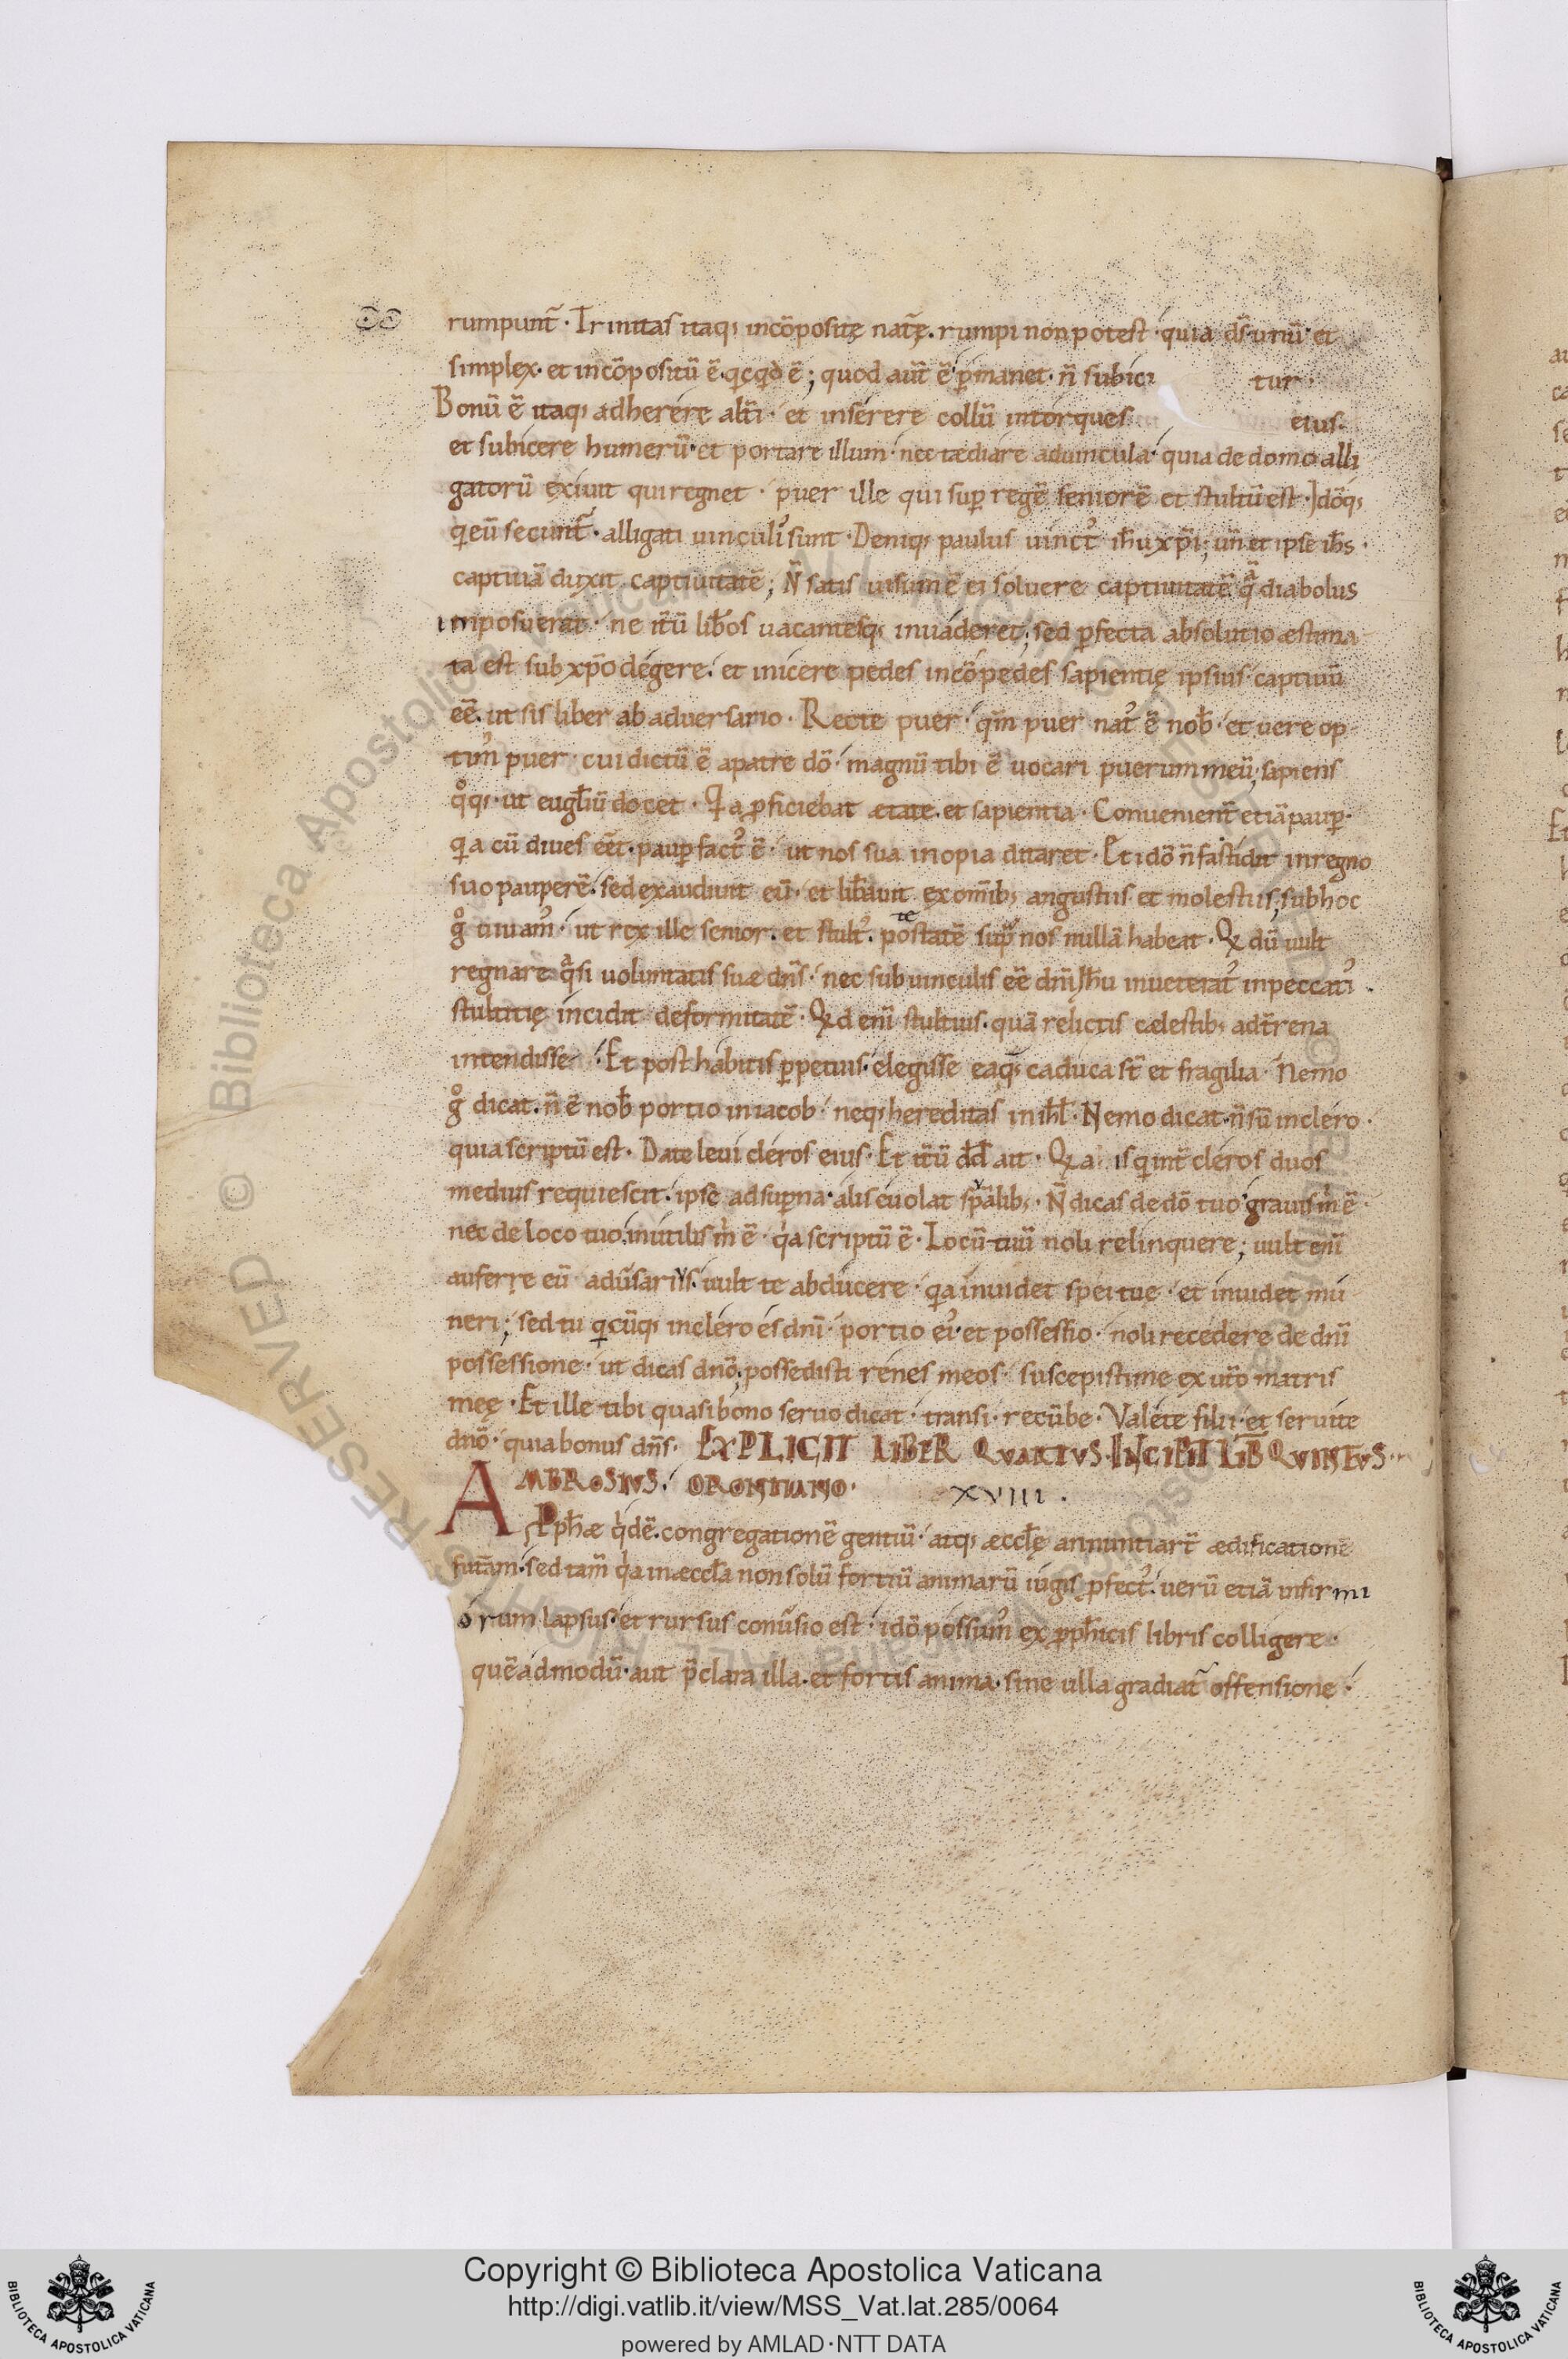 rumpunt᷑· Trinitas itaq; incōposite̜ nat̄e̜. rumpi non potest· quia d̄s unū· et
simplex· et incōpositū ē· qicqid ē; quod aut̄ ē p̄manet· n̄ subici tur·
Bonū ē itaq; adherere alt̄i· et inserere collū in torques eius·
et subicere humerū· et portare illum· nec tædiare aduincula· quia de domo alli
gatorū exiuit qui regnet· puer ille qui sup regē seniorē et stultū est· Idōq;
qi eū secunt᷑· alligati uinculis sunt· Deniq; paulus uinct᷒ ih̄u xp̄i; un̄ et ipse ih̄s·
captiuā duxit captiuitatē; N̄ satis uisum ē ei soluere captiuitatē qᵃ̄ diabolus
imposuerat· ne it̄ū lib̄os uacantesq; inuaderet; sed pfecta absolutio æstima
ta est sub xp̄o degere· et inicere pedes incōpedes sapientie̜ ipsius captiuū
eē· ut sis liber ab aduersario· Recte puer· qm̄ puer nat᷒ ē nob̄· et uere op
tim᷒ puer· cui dictū ē a patre dō· magnū tibi ē uocari puerum meū; sapiens
qᵒq;· ut eugl̄iū docet· Qia pficiebat ætate· et sapientia· Conuenient̄ etiā paup·
qia cū diues eēt· paup fact᷒ ē· ut nos sua inopia ditaret· Et idō n̄ fastidit in regno
suo pauperē· sed exaudiuit eū· et lib̄auit ex om̄ib; angustiis et molestiis; sub hoc
gᵒ uiuam᷒· ut rex ille senior· et stult᷒· potestatē sup nos nullā habeat· Qi dū uult
regnare qᵃsi uoluntatis suæ dn̄s· nec sub uinculis eē dn̄i Ih̄u inueterat᷒ in peccatis·
stultitie̜ incidit deformitatē· Qid eni stultius· quā relictis cælestib; ad t̄rena
intendisse· Et posthabitis ppetuis· elegisse ea q; caduca st̄ et fragilia· Nemo
gᵒ dicat· n̄ ē nob̄ portio in iacob· neq; hereditas in ihl̄· Nemo dicat· n̄ sū in clero·
quia scriptū est· Date leui cleros eius· Et it̄ū dd̄ ait· Qia is q int̄ cleros duos
medius requiescit· ipse ad supna· alis euolat sp̄alib;· N̄ dicas de dō tuo· grauis m̄ ē·
nec de loco tuo· inutilis m̄ ē· qia scriptū ē· Locū tuū noli relinquere; uult enī
auferre eū adūsarius· uult te abducere· qia inuidet spei tue̜· et inuidet mu
neri; sed tu qicūq; in clero es dn̄i· portio ei᷒· et possessio· noli recedere de dn̄i
possessione· ut dicas dn̄o; possedisti renes meos· suscepisti me ex ut̄o matris
mee̜· Et ille tibi quasi bono seruo dicat· transi· recūbe· Valete filii· et seruite
dn̄o· quia bonus dn̄s· EXPLICIT LIBER QVARTVS· INCIPIT LIB̄ QVINTVS·
AMBROSIVS· ORONTIANO· XVIII·
Pph̄æ qidē· congregationē gentiū· atq; æccl̄e̜ annuntiart̄ ædificationē
fut̄am· sed tam̄ qia in æccl̄a non solū fortiū animarū iugis pfect᷒· uerū etiā infirmi
orum lapsus· et rursus conūsio est· idō possum᷒ ex pph̄icis libris colligere·
quēadmodū· aut p̄clara illa· et fortis anima· sine ulla gradiat᷑ offensione·
Copyright © Biblioteca Apostolica Vaticana
http://digi.vatlib.it/view/MSS_Vat.lat.285/0064
powered by AMLAD·NTT DATA